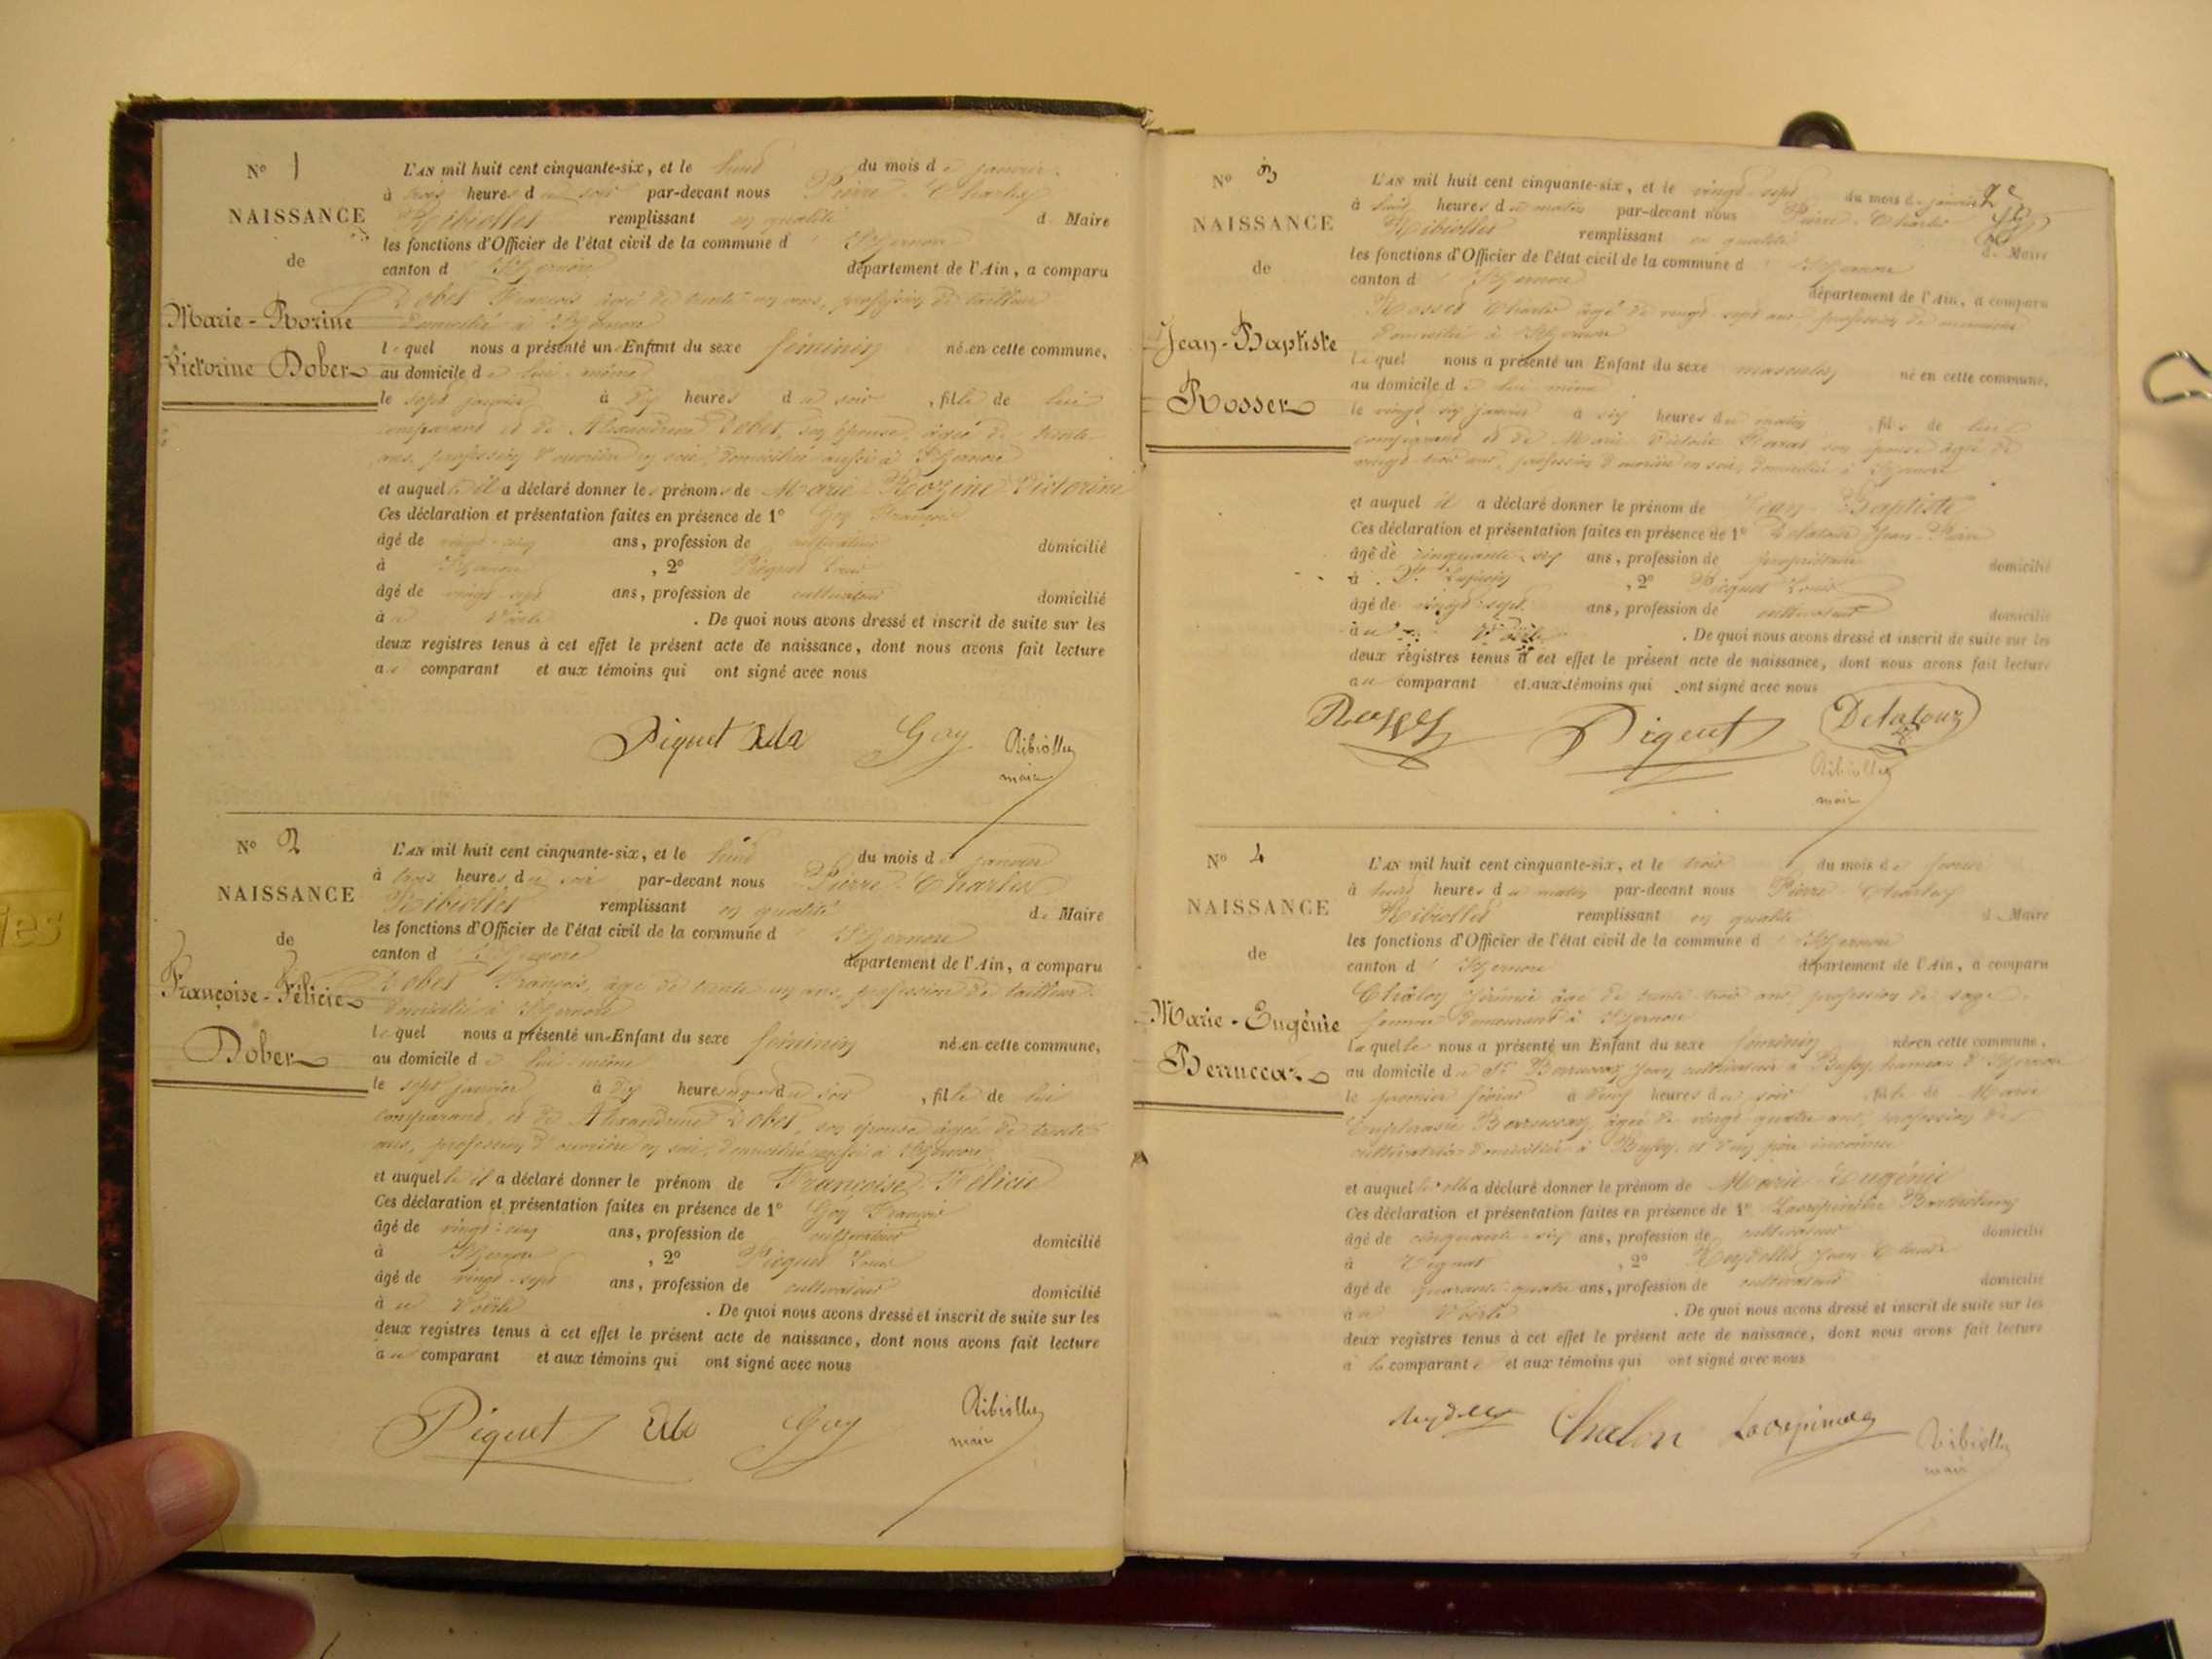 N° 1
NAISSANCE
de
Marie-Rozine
Victorine Dober
L'AN mil huit cent cinquante-six, et le huit du mois de janvier
à trois heures du soir par-devant nous Pierre-Charles
Ribiollet remplissant en qualité de Maire
les fonctions d'Officier de l'état civil de la commune d'Izernore
canton d'Izernore département de l'Ain, a comparu
Dobet François âgé de trente un ans, profession de tailleur
domicilié à Izernore
lequel nous a présenté un Enfant du sexe féminin né en cette commune,
au domicile de lui-même
le sept janvier à dix heures du soir, fille de lui
comparant et de Alexandrine Dobet, son épouse, âgée de trente
ans, profession d'ouvrière en soie, domiciliée aussi à Izernore
et auquel il a déclaré donner les prénoms de Marie Rozine Victorine
Ces déclaration et présentation faites en présence de 1° Goy François
âgé de vingt-cinq ans, profession de cultivateur domicilié
à Izernore, 2° Piquet Louis
âgé de vingt-sept ans, profession de cultivateur domicilié
à. De quoi nous avons dressé et inscrit de suite sur les
deux registres tenus à cet effet le présent acte de naissance, dont nous avons fait lecture
au comparant et aux témoins qui ont signé avec nous
Piquet Goy Ribiollet
maire
N° 2
NAISSANCE
de
Françoise-Félicie
Dober
L'AN mil huit cent cinquante-six, et le huit du mois de janvier
à trois heures du soir par-devant nous Pierre-Charles
Ribiollet remplissant en qualité de Maire
les fonctions d'Officier de l'état civil de la commune d'Izernore
canton d'Izernore département de l'Ain, a comparu
Dobet François, âgé de trente un ans, profession de tailleur
domicilié à Izernore
lequel nous a présenté un Enfant du sexe féminin né en cette commune,
au domicile de lui-même
le sept janvier à dix heures du soir, fille de lui
comparant, et de Alexandrine Dobet, son épouse âgée de trente
ans, profession d'ouvrière en soie, domiciliée aussi à Izernore
et auquel il a déclaré donner le prénom de Françoise Félicie
Ces déclaration et présentation faites en présence de 1° Goy François
âgé de vingt-cinq ans, profession de cultivateur domicilié
à Izernore, 2° Piquet Louis
âgé de vingt-sept ans, profession de cultivateur domicilié
à. De quoi nous avons dressé et inscrit de suite sur les
deux registres tenus à cet effet le présent acte de naissance, dont nous avons fait lecture
au comparant et aux témoins qui ont signé avec nous
Piquet Goy Ribiollet
maire
N° 3
NAISSANCE
de
Jean-Baptiste
Rosset
L'AN mil huit cent cinquante-six, et le vingt-sept du mois de janvier
à huit heures du matin par-devant nous Pierre-Charles
Ribiollet remplissant en qualité de Maire
les fonctions d'Officier de l'état civil de la commune d'Izernore
canton d'Izernore département de l'Ain, a comparu
Rosset Charles âgé de vingt-sept ans profession de
domicilié à Izernore
lequel nous a présenté un Enfant du sexe masculin né en cette commune,
au domicile de lui-même
le vingt six janvier à six heures du matin, fils de lui
comparant et de Marie son épouse âgée de
vingt-trois ans, profession d'ouvrière en soie, domiciliée à Izernore
et auquel il a déclaré donner le prénom de Jean-Baptiste
Ces déclaration et présentation faites en présence de 1° Delatour Jean-Pierre
âgé de cinquante-six ans, profession de propriétaire domicilié
à, 2° Piquet Louis
âgé de vingt-sept ans, profession de cultivateur domicilié
. De quoi nous avons dressé et inscrit de suite sur les
deux registres tenus à cet effet le présent acte de naissance, dont nous avons fait lecture
au comparant et aux témoins qui ont signé avec nous
Rosset Piquet Delatour
Ribiollet
maire
N° 4
NAISSANCE
de
Marie-Eugénie
Berruccaz
L'AN mil huit cent cinquante-six, et le trois du mois de février
à huit heures du matin par-devant nous Pierre Charles
Ribiollet remplissant en qualité de Maire
les fonctions d'Officier de l'état civil de la commune d'Izernore
canton d'Izernore département de l'Ain, a comparu
Châlon âgée de trente trois ans, profession de sage
femme demeurant à Izernore
laquelle nous a présenté un Enfant du sexe féminin né en cette commune,
au domicile de Jean cultivateur à hameau d'Izernore
le premier février à heures du soir, fille de Marie
âgée de vingt quatre ans, profession de
cultivatrice domiciliée à et d'un père inconnu
et auquel elle a déclaré donner le prénom de Marie-Eugénie
Ces déclaration et présentation faites en présence de 1°
âgé de cinquante-six ans, profession de cultivateur domicilié
à, 2° Jean Claude
âgé de quarante-quatre ans, profession de cultivateur domicilié
. De quoi nous avons dressé et inscrit de suite sur les
deux registres tenus à cet effet le présent acte de naissance, dont nous avons fait lecture
à la comparante et aux témoins qui ont signé avec nous
Chalon Ribiollet
maire